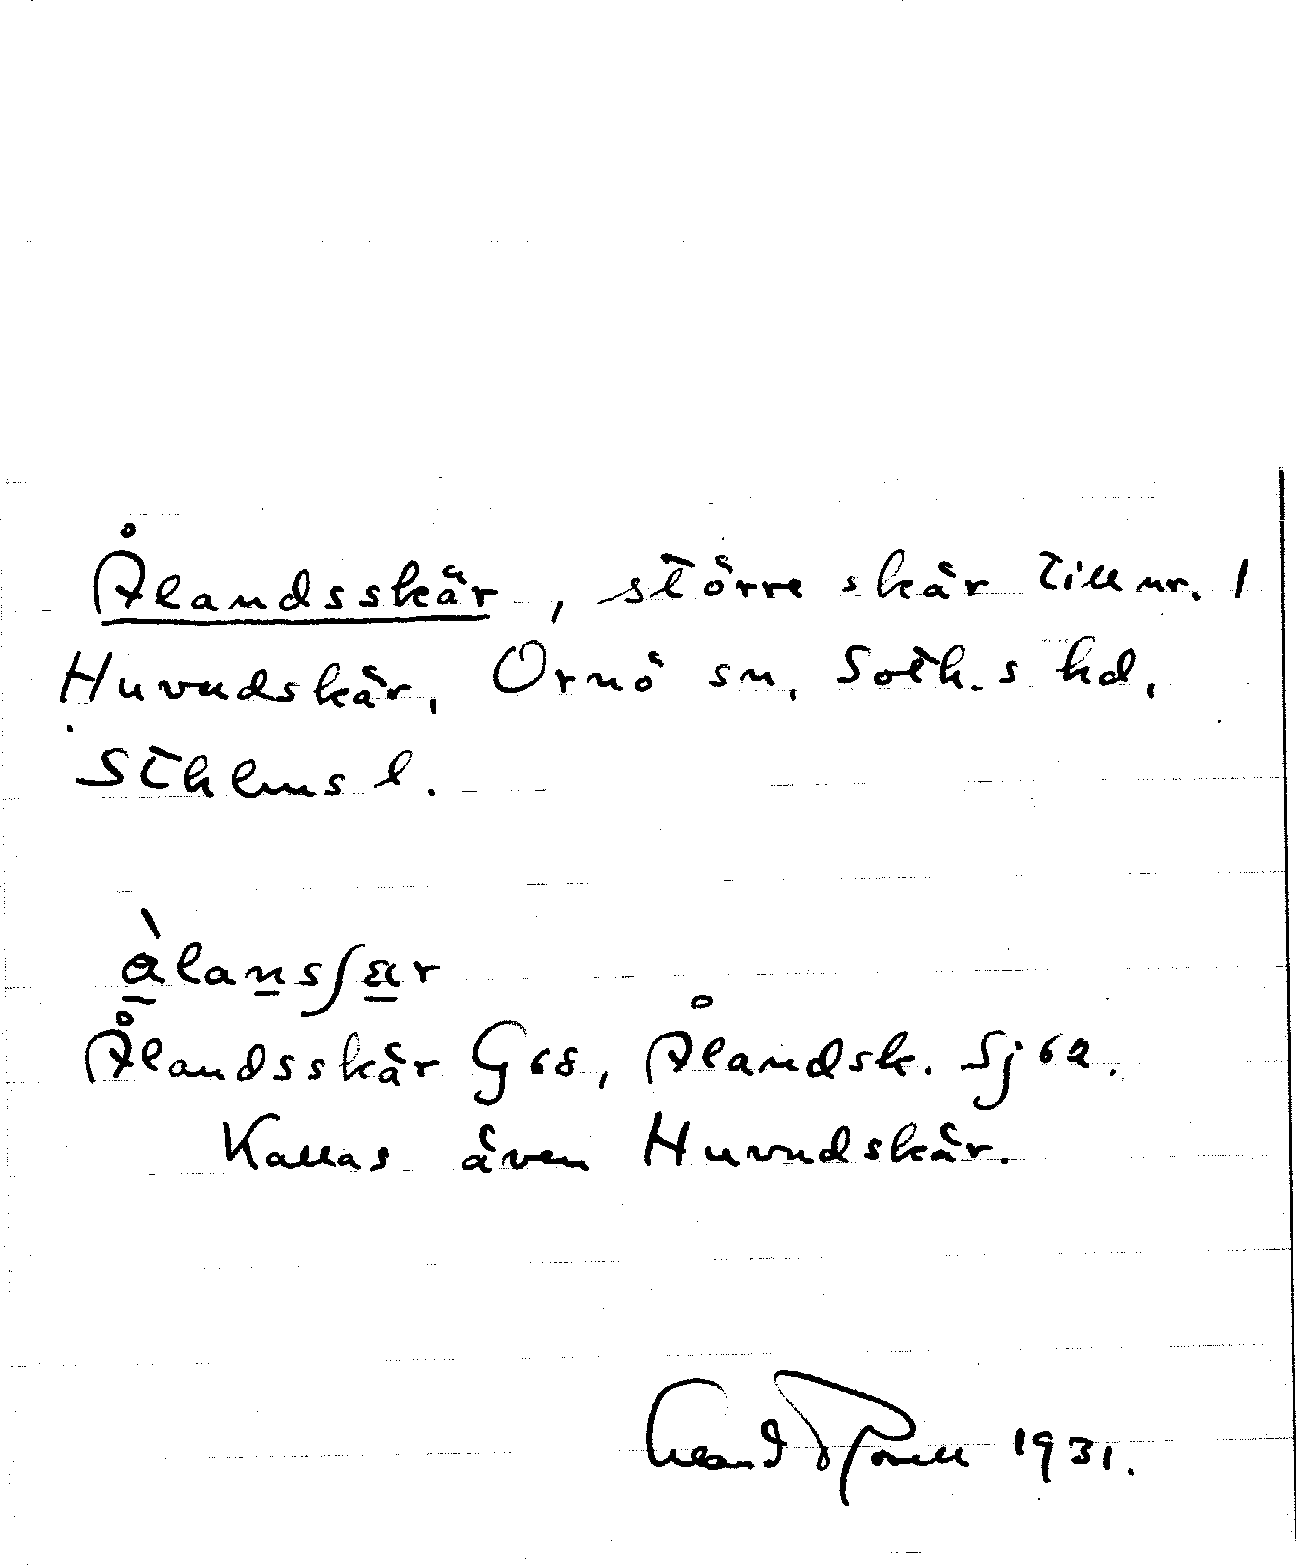 Ålandsskär, större skär till nr. 1
Huvudskär, Ornö sn, Soth.s hd,
Sthlms l.
Ålandsskär G68, Ålandsk. Sj 62.
Kallas även Huvudskär.
1931.